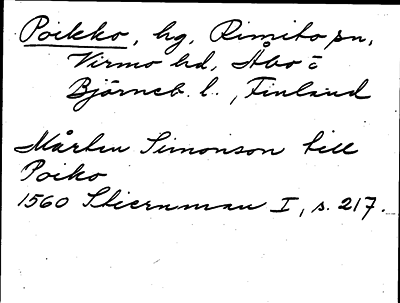 Poikko, hg, Rimito sn,
Virmo hd, Åbo o
Björneb. l., Finland
Mårten Simonson till
Poiko
1560 Stiernman I, s. 217.